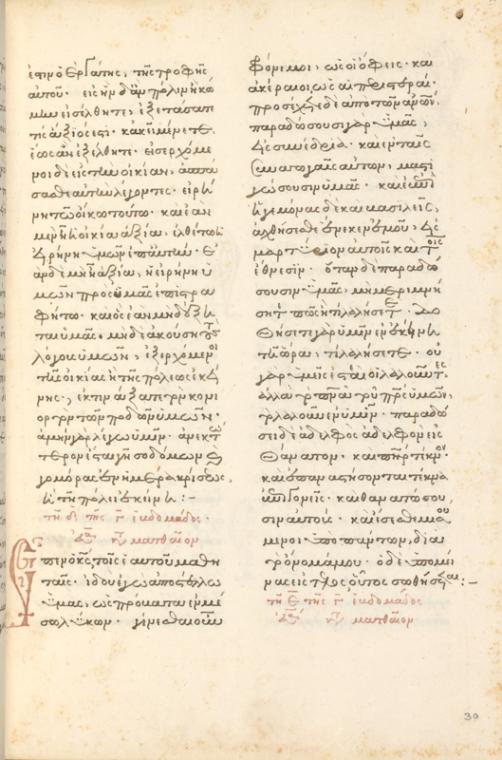 ἐστιν ὁ ἐργάτης, τῆς τροφῆς
αὐτοῦ. εἰς ἣν δ' ἂν πόλιν ἢ κώ
μην εἰσέλθητε, ἐξετάσατε
τίς ἄξιός ἐστι. κἀκεῖ μείνατε
ἕως ἂν ἐξέλθητε. εἰσερχόμε
νοι δὲ εἰς τὴν οἰκίαν, ἀσπά
σασθε αὐτὴν λέγοντες. εἰρή
νη τῷ οἴκῳ τούτῳ. καὶ ἐὰν
μὲν ἡ οἰκία ἀξία, ἐλθέτω ἡ
εἰρήνη ὑμῶν ἐπ' αὐτήν. ἐ
ὰν δὲ μὴ ἦ ἀξία, ἡ εἰρήνη ὑ
μῶν πρὸς ὑμᾶς ἐπιστρα
φήτω. καὶ ὃς ἐὰν μὴ δέξη
ται ὑμᾶς, μηδὲ ἀκούσῃ τοὺς
λόγους ὑμῶν, ἐξερχόμενοι
τῆς οἰκίας ἢ τῆς πόλεως ἐκεί
νης, ἐκτινάξατε τὸν κονι
ορτὸν τῶν ποδῶν ὑμῶν.
ἀμὴν λέγω ὑμῖν. ἀνεκτό
τερον ἔσται γῇ σοδόμων καὶ
γομόρας ἐν ἡμέρα κρίσεως,
ἢ τῇ πόλει ἐκείνῃ :–
τῇ δ̅ τῆς γ̅ ἑβδομάδος.
ἐκ τοῦ κατὰ ματθαῖον
Εἶπεν ὁ κς̅ τοῖς ἑαυτοῦ μαθη
ταῖς. ἰδοὺ ἐγὼ ἀποστέλλω
ὑμᾶς, ὡς πρόβατα ἐν μέ
σῳ λύκων. γίνεσθε οὖν
φρόνιμοι, ὡς οἱ ὄφεις. καὶ
ἀκέραιοι, ὡς αἱ περιστεραί.
προσέχετε δὲ ἀπὸ τῶν ἀνων̅,
παραδώσουσι γὰρ ὑμᾶς,
εἰς συνέδρια. καὶ ἐν ταῖς
συναγωγαῖς αὐτῶν, μαστι
γώσουσιν ὑμᾶς. καὶ ἐπὶ
ἡγεμόνας δὲ καὶ βασιλεῖς,
ἀχθήσεσθε ἕνεκεν ἐμοῦ, εἰς
μαρτύριον αὐτοῖς καὶ τοῖς
ἔθνεσιν. ὅταν δὲ παραδώ
σουσιν ὑμᾶς, μὴ μεριμνή
σητε πῶς ἢ τί λαλήσετε. δο
θήσεται γὰρ ὑμῖν ἐν ἐκείνῃ
τῇ ὥρα, τί λαλήσετε. οὐ
γὰρ ὑμεῖς ἐστὲ οἱ λαλοῦντες.
ἀλλὰ τὸ πνα̅ τοῦ πρς̅ ὑμῶν,
τὸ λαλοῦν ἐν ὑμῖν. παραδώ
σει δὲ ἀδελφὸς ἀδελφὸν εἰς
θάνατον. καὶ πηρ̅ τέκνον.
καὶ ἐπαναστήσονται τέκνα
ἐπὶ γονεῖς. καὶ θανατώσου
σιν αὐτούς. καὶ ἔσεσθε μισού
μενοι ὑπὸ πάντων, διὰ
τὸ ὄνομά μου. ὁ δὲ ὑπομεί
νας εἰς τέλος οὗτος σωθήσεται :–
τῇ ε̅ τῆς γ̅ ἑβδομάδος
ἐκ τοῦ κατὰ ματθαῖον
30